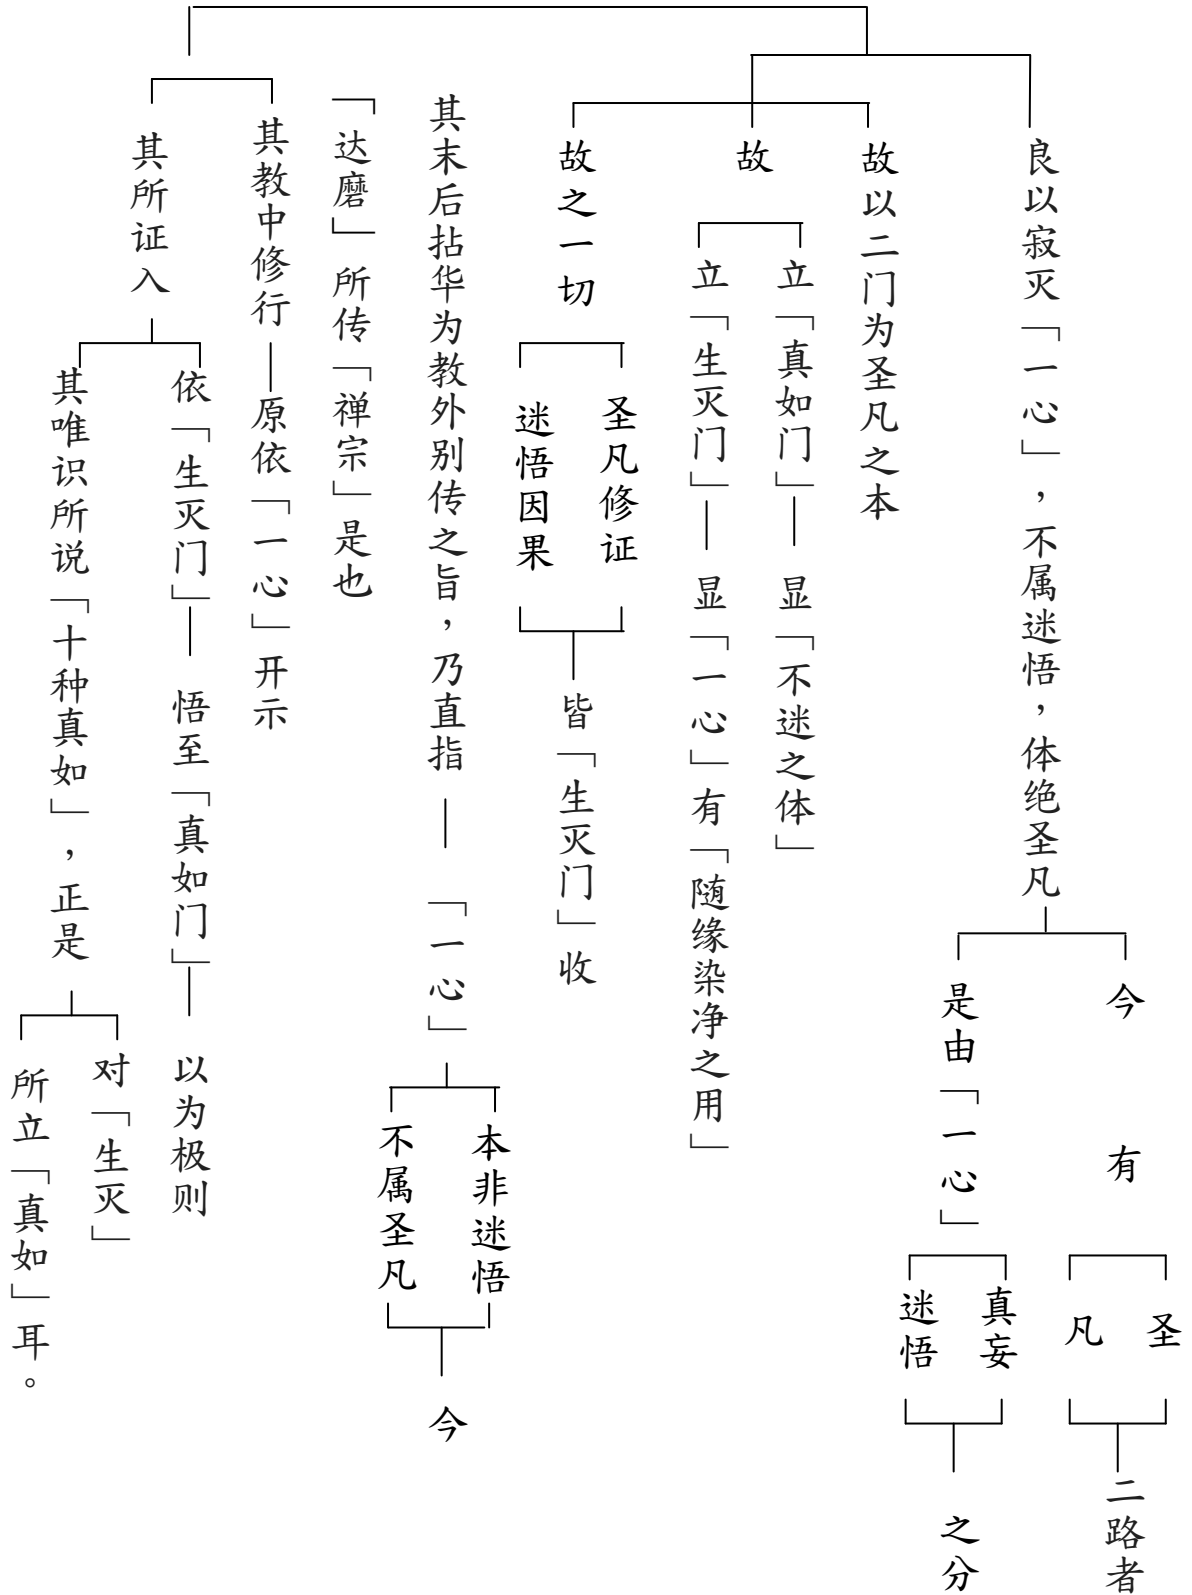 良以寂灭「一心」，不属迷悟，体绝圣凡
今有
圣
凡
二路者
是由「一心」
真妄
迷悟
之分
故以二门为圣凡之本
故
立「真如门」——显「不迷之体」
立「生灭门」——显「一心」有「随缘染净之用」
故之一切
圣凡修证
迷悟因果
皆「生灭门」收
其末后拈华为教外别传之旨，乃直指——「一心」
本非迷悟
不属圣凡
今
「达磨」所传「禅宗」是也
其教中修行——原依「一心」开示
其所证入
依「生灭门」——悟至「真如门」——以为极则
其唯识所说「十种真如」，正是
对「生灭」
所立「真如」耳。